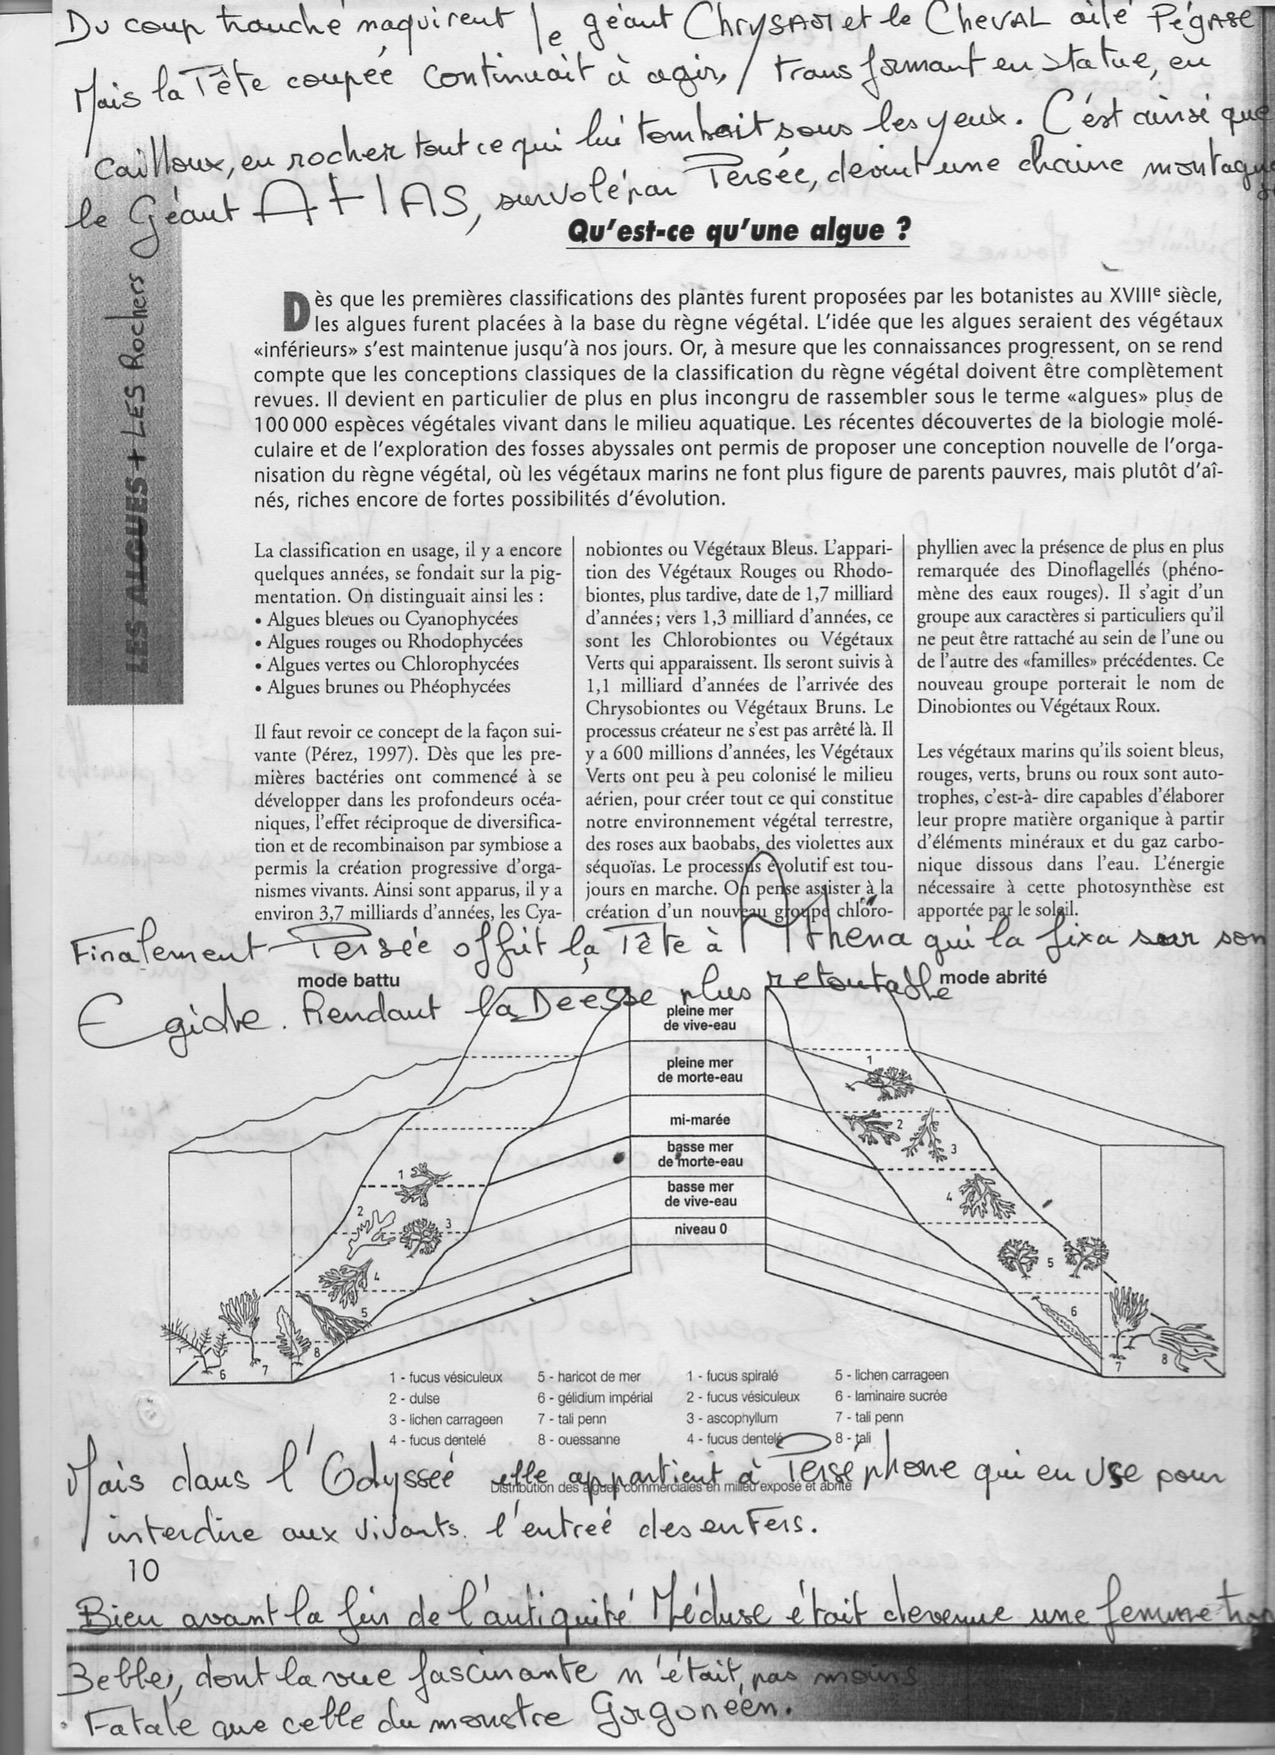 Du coup tranché naquirent le géant Chrysaor et le Cheval ailé Pégase
Mais la Tête coupée continuait à agir, transformant en statue, en
cailloux, en rocher tout ce qui lui tombait sous les yeux. C'est ainsi que
le Géant AtlAS, survolé par Persée, devint une chaine montagne
LES ALGUES + LES Rochers
Qu'est-ce qu'une algue ?
Dès que les premières classifications des plantes furent proposées par les botanistes au XVIIIe siècle,
les algues furent placées à la base du règne végétal. L'idée que les algues seraient des végétaux
«inférieurs» s'est maintenue jusqu'à nos jours. Or, à mesure que les connaissances progressent, on se rend
compte que les conceptions classiques de la classification du règne végétal doivent être complètement
revues. Il devient en particulier de plus en plus incongru de rassembler sous le terme «algues» plus de
100 000 espèces végétales vivant dans le milieu aquatique. Les récentes découvertes de la biologie molé-
culaire et de l'exploration des fosses abyssales ont permis de proposer une conception nouvelle de l'orga-
nisation du règne végétal, où les végétaux marins ne font plus figure de parents pauvres, mais plutôt d'aî-
nés, riches encore de fortes possibilités d'évolution.
La classification en usage, il y a encore
quelques années, se fondait sur la pig-
mentation. On distinguait ainsi les :
• Algues bleues ou Cyanophycées
• Algues rouges ou Rhodophycées
• Algues vertes ou Chlorophycées
• Algues brunes ou Phéophycées
Il faut revoir ce concept de la façon sui-
vante (Pérez, 1997). Dès que les pre-
mières bactéries ont commencé à se
développer dans les profondeurs océa-
niques, l'effet réciproque de diversifica-
tion et de recombinaison par symbiose a
permis la création progressive d'orga-
nismes vivants. Ainsi sont apparus, il y a
environ 3,7 milliards d'années, les Cya-
nobiontes ou Végétaux Bleus. L'appari-
tion des Végétaux Rouges ou Rhodo-
biontes, plus tardive, date de 1,7 milliard
d'années ; vers 1,3 milliard d'années, ce
sont les Chlorobiontes ou Végétaux
Verts qui apparaissent. Ils seront suivis à
1,1 milliard d'années de l'arrivée des
Chrysobiontes ou Végétaux Bruns. Le
processus créateur ne s'est pas arrêté là. Il
y a 600 millions d'années, les Végétaux
Verts ont peu à peu colonisé le milieu
aérien, pour créer tout ce qui constitue
notre environnement végétal terrestre,
des roses aux baobabs, des violettes aux
séquoïas. Le processus évolutif est tou-
jours en marche. On pense assister à la
création d'un nouveau groupe chloro-
phyllien avec la présence de plus en plus
remarquée des Dinoflagellés (phéno-
mène des eaux rouges). Il s'agit d'un
groupe aux caractères si particuliers qu'il
ne peut être rattaché au sein de l'une ou
de l'autre des «familles» précédentes. Ce
nouveau groupe porterait le nom de
Dinobiontes ou Végétaux Roux.
Les végétaux marins qu'ils soient bleus,
rouges, verts, bruns ou roux sont auto-
trophes, c'est-à- dire capables d'élaborer
leur propre matière organique à partir
d'éléments minéraux et du gaz carbo-
nique dissous dans l'eau. L'énergie
nécessaire à cette photosynthèse est
apportée par le soleil.
Finalement Persée offrit la Tête à Athéna qui la fixa sur son
Egidre. Rendant la Deesse plus retoutable
mode battu
mode abrité
pleine mer
de vive-eau
pleine mer
de morte-eau
mi-marée
basse mer
de morte-eau
basse mer
de vive-eau
niveau 0
1
2
3
4
5
6
7
8
1
2
3
4
5
6
7
8
1 - fucus vésiculeux
2 - dulse
3 - lichen carrageen
4 - fucus dentelé
5 - haricot de mer
6 - gélidium impérial
7 - tali penn
8 - ouessanne
1 - fucus spiralé
2 - fucus vésiculeux
3 - ascophyllum
4 - fucus dentelé
5 - lichen carrageen
6 - laminaire sucrée
7 - tali penn
8 - tali
Mais dans l'Odysseé elle appartient à Perséphone qui en use pour
Distribution des algues commerciales en milieu exposé et abrité
interdire aux vivants. l'entreé des enfers.
10
Bien avant la fin de l'antiquité Méduse était devenue une femme trop
Belle, dont la vue fascinante n'était pas moins
Fatale que celle du monstre Gorgonéen.